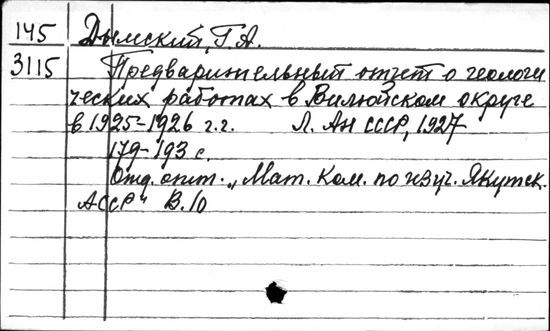 145 Дымский, Г.А.
3115 Предварительный отчет о геологи
ческих работах в Вилюйском округе
в 1925-1926 г.г. Л. АН СССР, 1927
179-193 с.
Отд. отт. „Мат. Ком. по изуч. Якутск.
АССР" В. 10